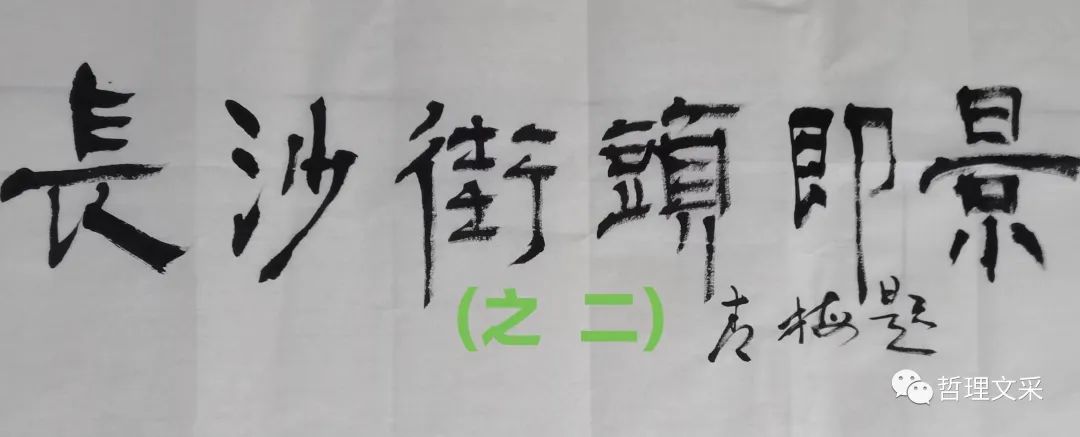 長沙街頭即景
(之 二)
青梅題
哲理文采